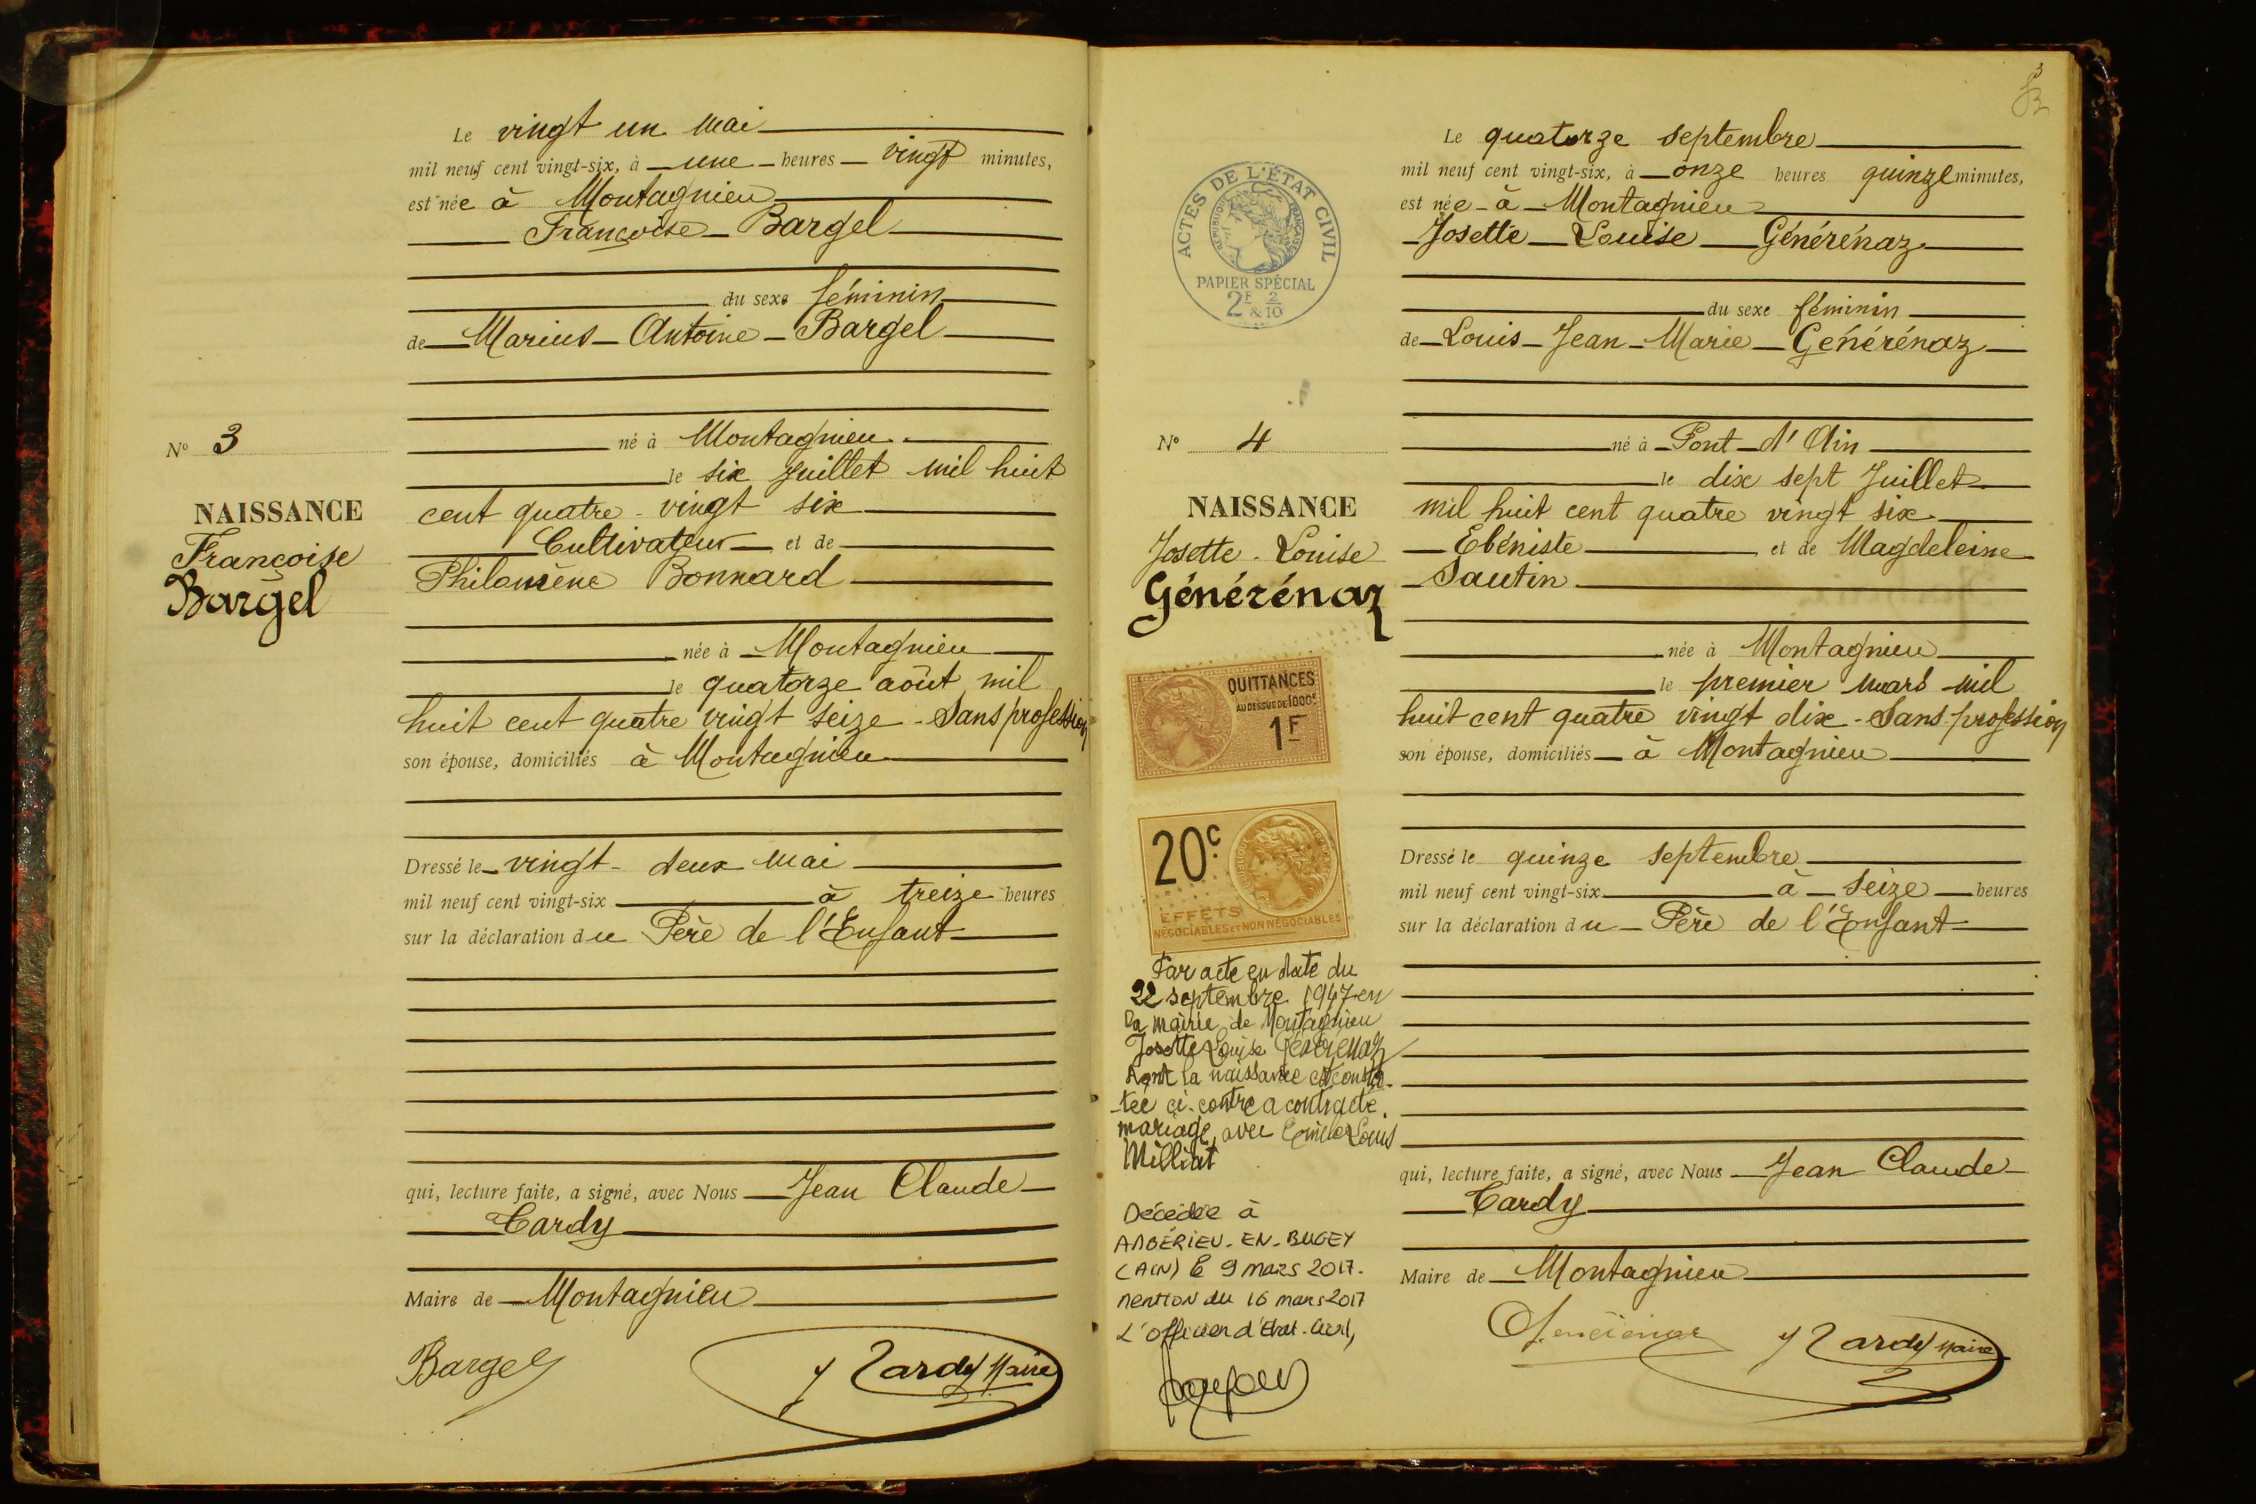 Le vingt un mai
mil neuf cent vingt-six, à une heures vingt minutes,
est née à Montagnieu
Françoise Bargel
du sexe féminin
de Marius Antoine Bargel
né à Montagnieu
le six Juillet mil huit
cent quatre-vingt six
Cultivateur et de
Philomène Bonnard
née à Montagnieu
le quatorze août mil
huit cent quatre vingt seize - Sans profession
son épouse, domiciliés à Montagnieu
Dressé le vingt-deux mai
mil neuf cent vingt-six à treize heures
sur la déclaration du Père de l'Enfant
qui, lecture faite, a signé, avec Nous Jean Claude
Cardy
Maire de Montagnieu
Bargel
J Cardy Maire
N° 3
NAISSANCE
Françoise
Bargel
3
Le quatorze septembre
mil neuf cent vingt-six, à onze heures quinze minutes,
est née à Montagnieu
Josette Louise Générénaz
du sexe féminin
de Louis Jean Marie Générénaz
né à Pont d'Ain
le dix sept Juillet
mil huit cent quatre vingt six
Ebéniste et de Magdeleine
Sautin
née à Montagnieu
le premier mars mil
huit cent quatre vingt dix - Sans profession
son épouse, domiciliés à Montagnieu
Dressé le quinze septembre
mil neuf cent vingt-six à seize heures
sur la déclaration du Père de l'Enfant
qui, lecture faite, a signé, avec Nous Jean Claude
Cardy
Maire de Montagnieu
Générénaz
J Cardy Maire
ACTES DE L'ÉTAT CIVIL
RÉPUBLIQUE FRANÇAISE
PAPIER SPÉCIAL
2F & 2/10
N° 4
NAISSANCE
Josette - Louise
Générénaz
QUITTANCES
AU DESSUS DE 1000F
1F
20c
EFFETS
NÉGOCIABLES ET NON NÉGOCIABLES
Par acte en date du
22 septembre 1947 en
la mairie de Montagnieu
Josette Louise Générénaz
dont la naissance est consta-
tée ci-contre a contracté
mariage avec Louis
Milliat
Décédée à
AMBÉRIEU-EN-BUGEY
(AIN) le 9 mars 2017.
mention du 16 mars 2017
L'officier d'Etat-Civil,